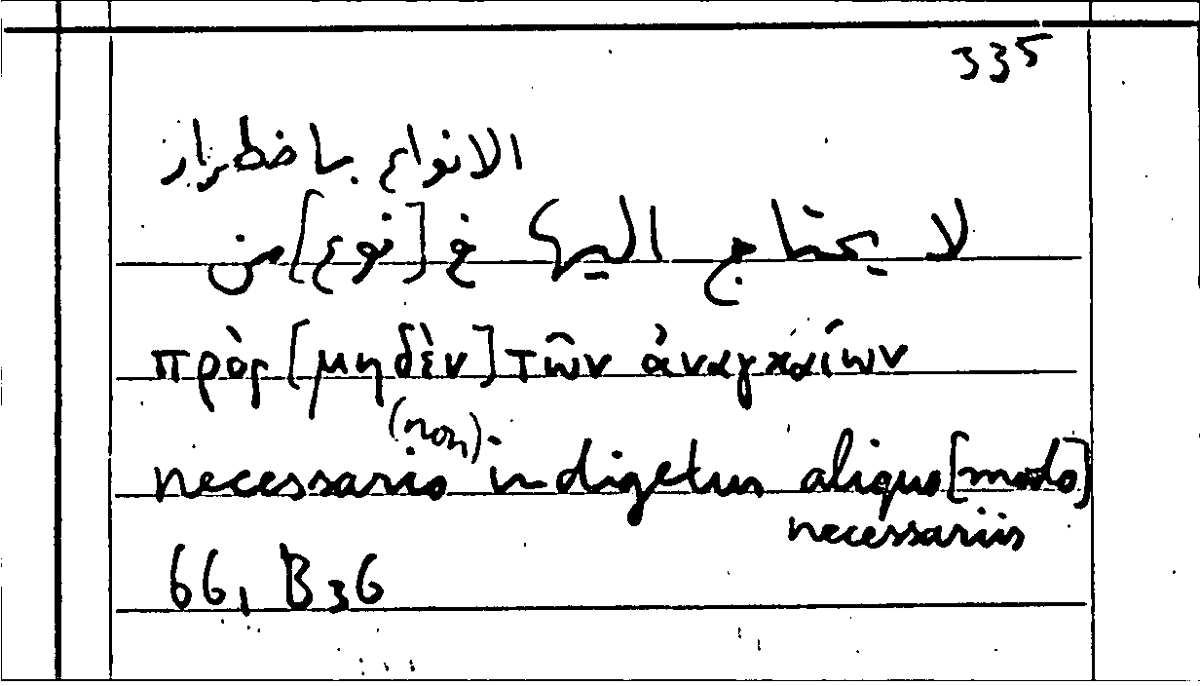 335
الانواع باضطرار
لا يحتاج اليها في [نوع] من
πρὸς [μηδὲν] τῶν ἀναγκαίων
(non)
necessario indigetur aliquo [modo]
necessariis
66, B 36